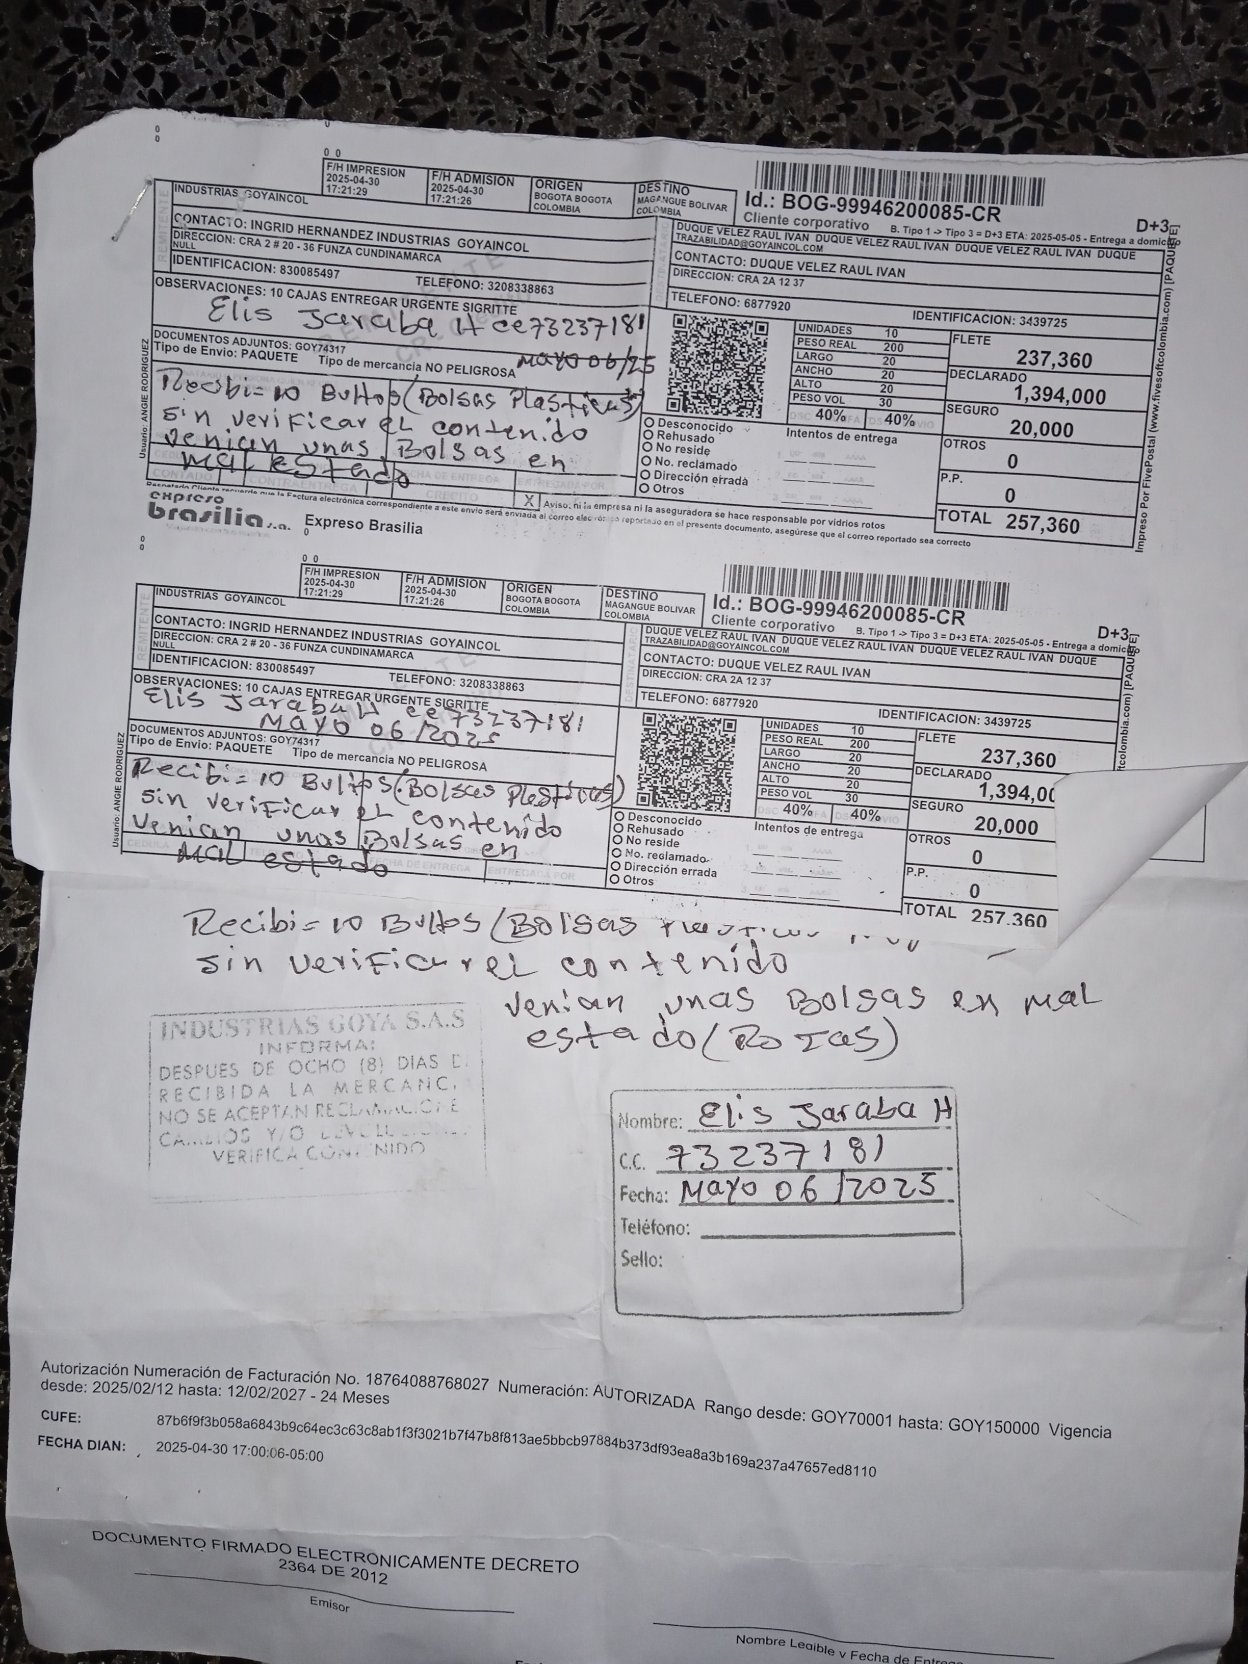 F/H IMPRESION
2025-04-30
17:21:29
F/H ADMISION
2025-04-30
17:21:26
ORIGEN
BOGOTA BOGOTA
COLOMBIA
DESTINO
MAGANGUE BOLIVAR
COLOMBIA
Id.: BOG-99946200085-CR
Cliente corporativo
B. Tipo 1 -> Tipo 3 = D+3 ETA: 2025-05-05 - Entrega a domicilio
D+3
REMITENTE
INDUSTRIAS GOYAINCOL
CONTACTO: INGRID HERNANDEZ INDUSTRIAS GOYAINCOL
DIRECCION: CRA 2 # 20 - 36 FUNZA CUNDINAMARCA
NULL
IDENTIFICACION: 830085497
TELEFONO: 3208338863
OBSERVACIONES: 10 CAJAS ENTREGAR URGENTE SIGRITTE
Elis Jaraba H cc 73237181
DOCUMENTOS ADJUNTOS: GOY74317
Tipo de Envio: PAQUETE Tipo de mercancia NO PELIGROSA
MAYO 06/25
Recibi = 10 Bultos (Bolsas Plasticas)
sin verificar el contenido
venian unas Bolsas en
mal estado
Usuario: ANGIE RODRIGUEZ
DUQUE VELEZ RAUL IVAN DUQUE VELEZ RAUL IVAN DUQUE VELEZ RAUL IVAN DUQUE
TRAZABILIDAD@GOYAINCOL.COM
CONTACTO: DUQUE VELEZ RAUL IVAN
DIRECCION: CRA 2A 12 37
TELEFONO: 6877920
IDENTIFICACION: 3439725
UNIDADES 10
PESO REAL 200
LARGO 20
ANCHO 20
ALTO 20
PESO VOL 30
40% 40%
FLETE
237,360
DECLARADO
1,394,000
SEGURO
20,000
OTROS
0
P.P.
0
TOTAL 257,360
Desconocido
Rehusado
No reside
No. reclamado
Dirección errada
Otros
Intentos de entrega
Impreso Por FivePostal (www.fivesoftcolombia.com) [PAQUETE]
X Aviso: ni la empresa ni la aseguradora se hace responsable por vidrios rotos
expreso
brasilia s.a.
Expreso Brasilia
F/H IMPRESION
2025-04-30
17:21:29
F/H ADMISION
2025-04-30
17:21:26
ORIGEN
BOGOTA BOGOTA
COLOMBIA
DESTINO
MAGANGUE BOLIVAR
COLOMBIA
Id.: BOG-99946200085-CR
Cliente corporativo
B. Tipo 1 -> Tipo 3 = D+3 ETA: 2025-05-05 - Entrega a domicilio
D+3
REMITENTE
INDUSTRIAS GOYAINCOL
CONTACTO: INGRID HERNANDEZ INDUSTRIAS GOYAINCOL
DIRECCION: CRA 2 # 20 - 36 FUNZA CUNDINAMARCA
NULL
IDENTIFICACION: 830085497
TELEFONO: 3208338863
OBSERVACIONES: 10 CAJAS ENTREGAR URGENTE SIGRITTE
Elis Jaraba H cc 73237181
MAYO 06/2025
DOCUMENTOS ADJUNTOS: GOY74317
Tipo de Envio: PAQUETE Tipo de mercancia NO PELIGROSA
Recibi = 10 Bultos (Bolsas Plasticas)
sin verificar el contenido
venian unas Bolsas en
mal estado
Usuario: ANGIE RODRIGUEZ
DUQUE VELEZ RAUL IVAN DUQUE VELEZ RAUL IVAN DUQUE VELEZ RAUL IVAN DUQUE
TRAZABILIDAD@GOYAINCOL.COM
CONTACTO: DUQUE VELEZ RAUL IVAN
DIRECCION: CRA 2A 12 37
TELEFONO: 6877920
IDENTIFICACION: 3439725
UNIDADES 10
PESO REAL 200
LARGO 20
ANCHO 20
ALTO 20
PESO VOL 30
40% 40%
FLETE
237,360
DECLARADO
1,394,0
SEGURO
20,000
OTROS
0
P.P.
0
TOTAL 257.360
Desconocido
Rehusado
No reside
No. reclamado.
Dirección errada
Otros
Intentos de entrega
Recibi = 10 Bultos (Bolsas
sin verificar el contenido
venian unas Bolsas en mal
estado (Rotas)
INDUSTRIAS GOYA S.A.S
INFORMA:
DESPUES DE OCHO (8) DIAS D
RECIBIDA LA MERCANC
NO SE ACEPTAN RECLAMACIONE
CAMBIOS Y/O
VERIFICA CONTENIDO
Nombre: Elis Jaraba H
C.C. 73237181
Fecha: MAYO 06/2025
Teléfono:
Sello:
Autorización Numeración de Facturación No. 18764088768027 Numeración: AUTORIZADA Rango desde: GOY70001 hasta: GOY150000 Vigencia
desde: 2025/02/12 hasta: 12/02/2027 - 24 Meses
CUFE: 87b6f9f3b058a6843b9c64ec3c63c8ab1f3f3021b7f47b8f813ae5bbcb97884b373df93ea8a3b169a237a47657ed8110
FECHA DIAN: 2025-04-30 17:00:06-05:00
DOCUMENTO FIRMADO ELECTRONICAMENTE DECRETO
2364 DE 2012
Emisor
Nombre Legible y Fecha de Entreg